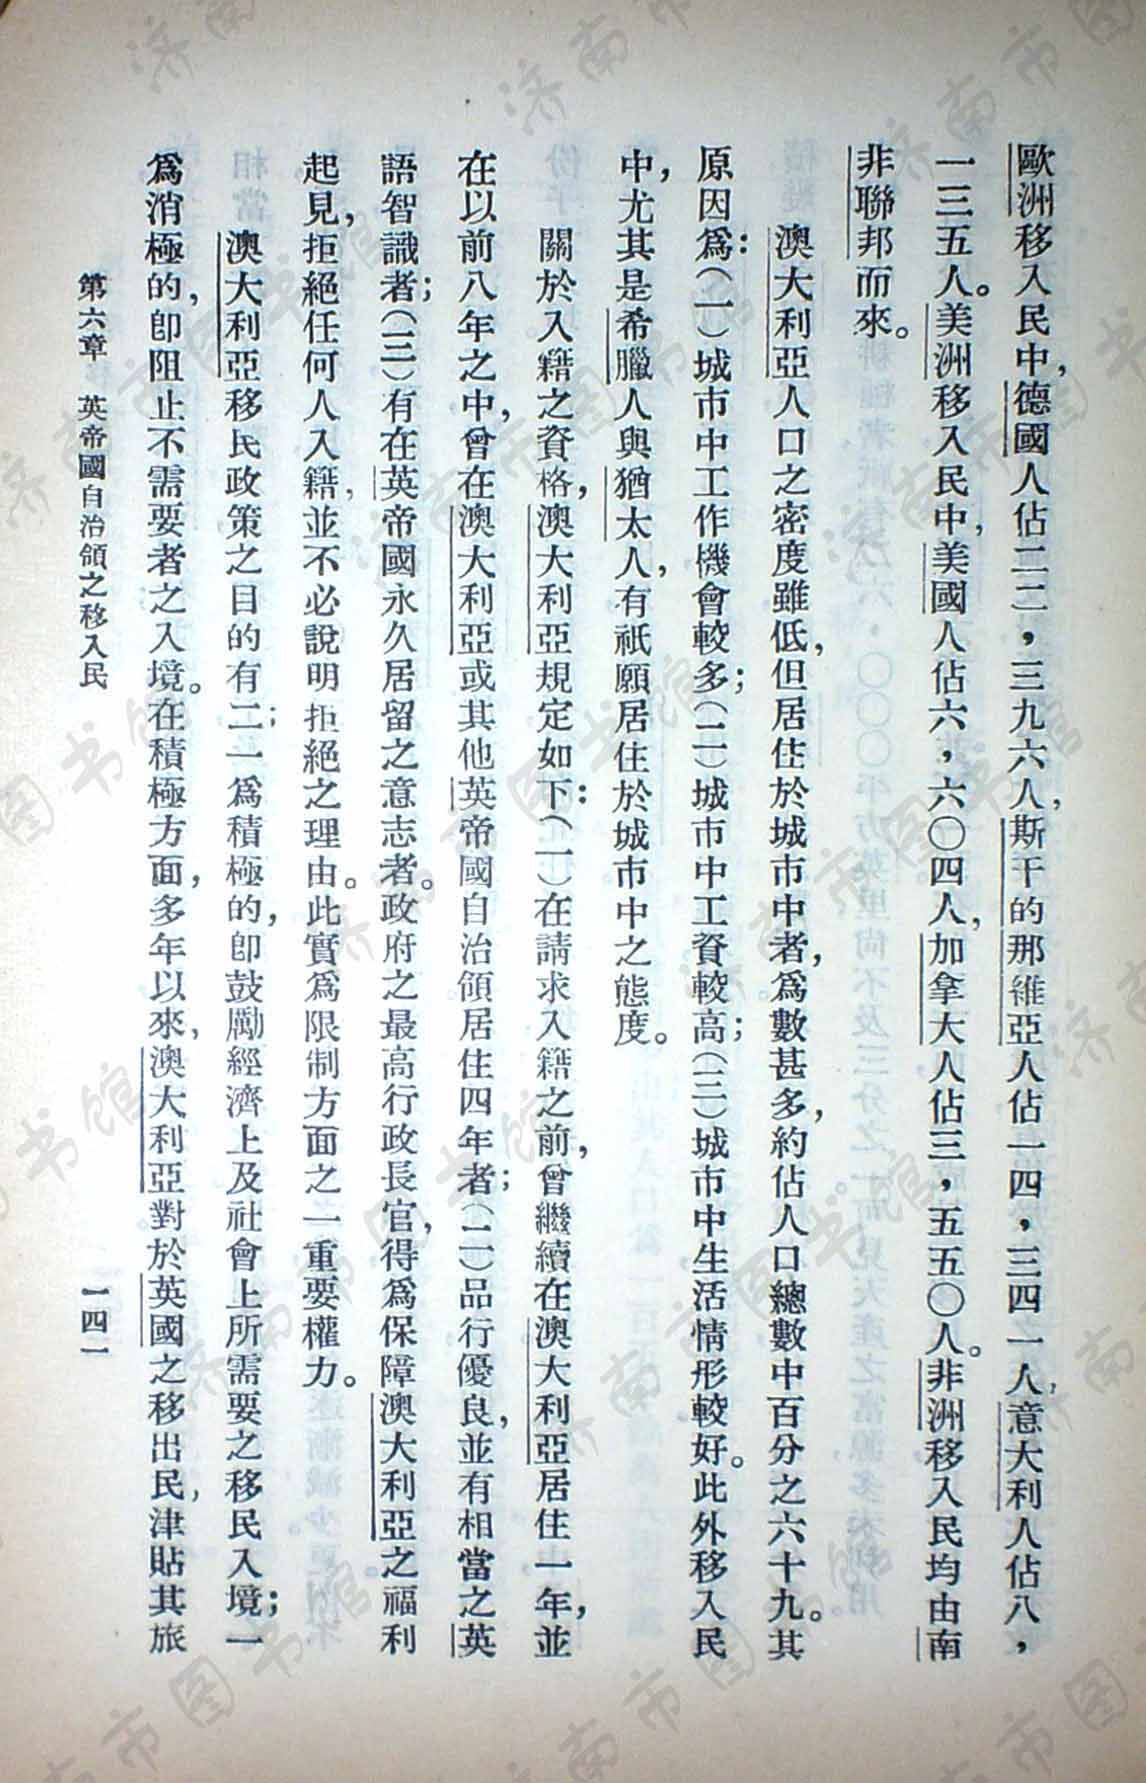 歐洲移入民中，德國人佔二二，三九六人，斯干的那維亞人佔一四，三四一人，意大利人佔八，
一三五人。美洲移入民中，美國人佔六，六〇四人，加拿大人佔三，五五〇人。非洲移入民均由南
非聯邦而來。
澳大利亞人口之密度雖低，但居住於城市中者，爲數甚多，約佔人口總數中百分之六十九。其
原因爲：（一）城市中工作機會較多；（二）城市中工資較高；（三）城市中生活情形較好。此外移入民
中，尤其是希臘人與猶太人，有祇願居住於城市中之態度。
關於入籍之資格，澳大利亞規定如下：（一）在請求入籍之前，曾繼續在澳大利亞居住一年，並
在以前八年之中，曾在澳大利亞或其他英帝國自治領居住四年者；（二）品行優良，並有相當之英
語智識者；（三）有在英帝國永久居留之意志者。政府之最高行政長官，得爲保障澳大利亞之福利
起見，拒絕任何人入籍，並不必說明拒絕之理由。此實爲限制方面之一重要權力。
澳大利亞移民政策之目的有二；一爲積極的，卽鼓勵經濟上及社會上所需要之移民入境；一
爲消極的，卽阻止不需要者之入境。在積極方面，多年以來，澳大利亞對於英國之移出民，津貼其旅
第六章 英帝國自治領之移入民 一四一
济南市图书馆